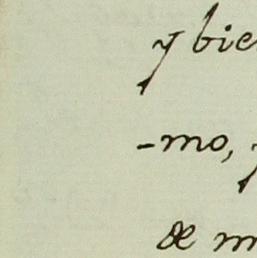 y bie
-mo, y
de m